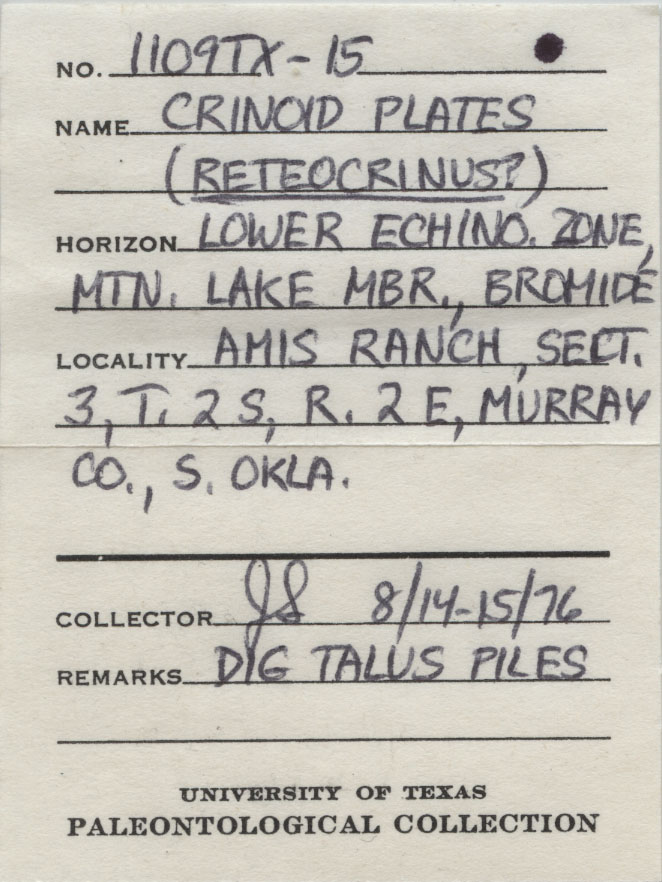 NO. 1109TX-15
NAME CRINOID PLATES
(RETEOCRINUS?)
HORIZON LOWER ECHINO. ZONE,
MTN. LAKE MBR., BROMIDE
LOCALITY AMIS RANCH, SECT.
3, T. 2 S, R. 2 E, MURRAY
CO., S. OKLA.
COLLECTOR JS 8/14-15/76
REMARKS DIG TALUS PILES
UNIVERSITY OF TEXAS
PALEONTOLOGICAL COLLECTION